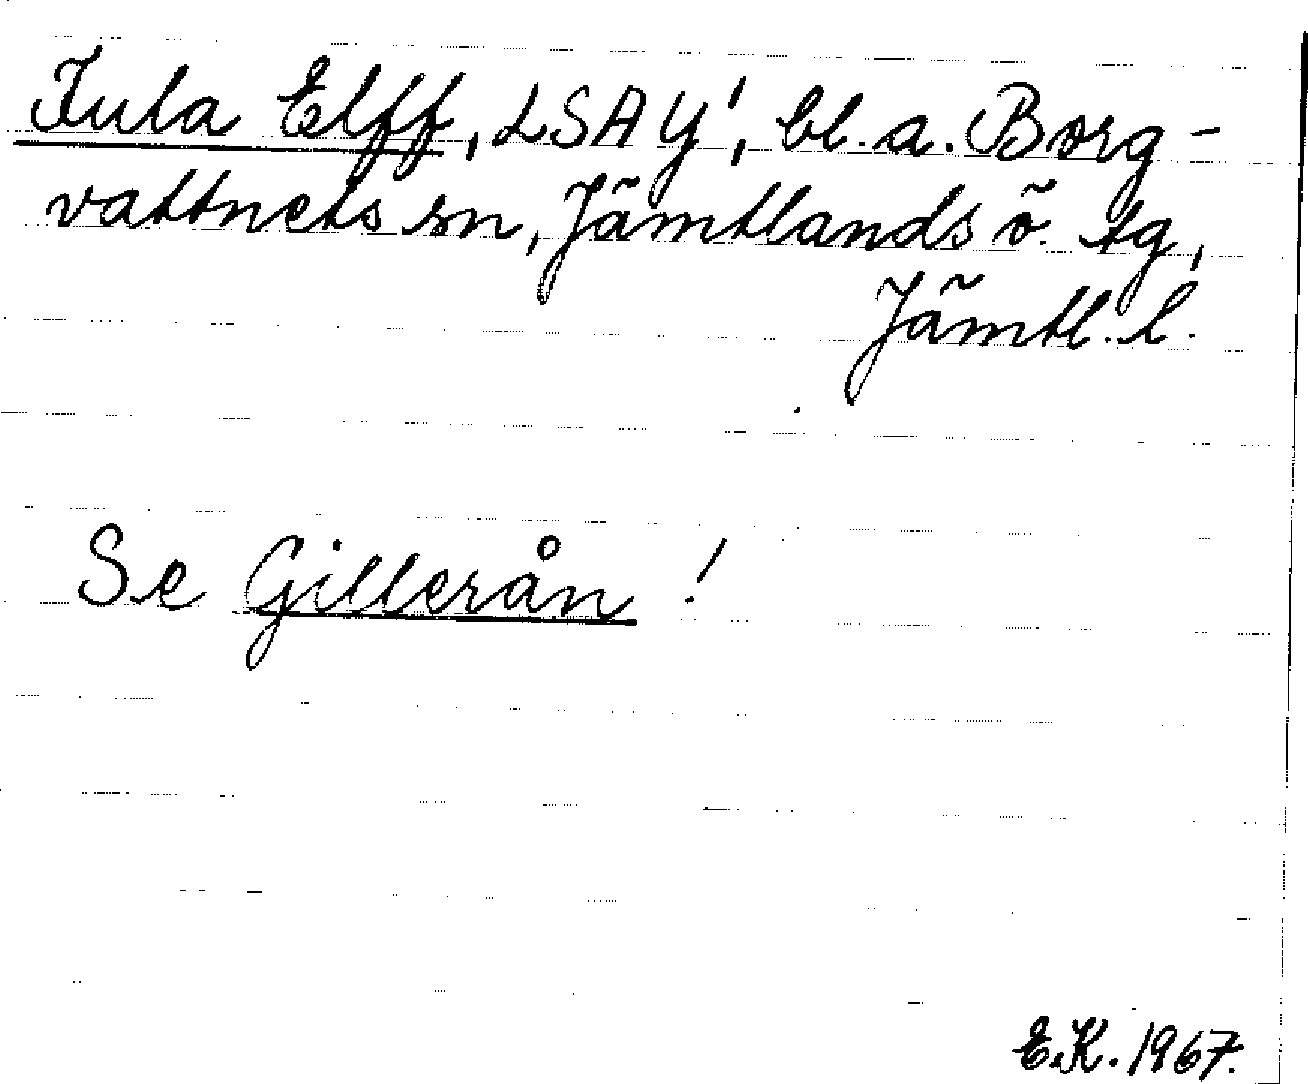 Jula Elff, LSA Y', bl.a. Borg-
vattnets sn, Jämtlands ö. tg,
Jämtl. l.
Se Gillerån !
E.K. 1967.